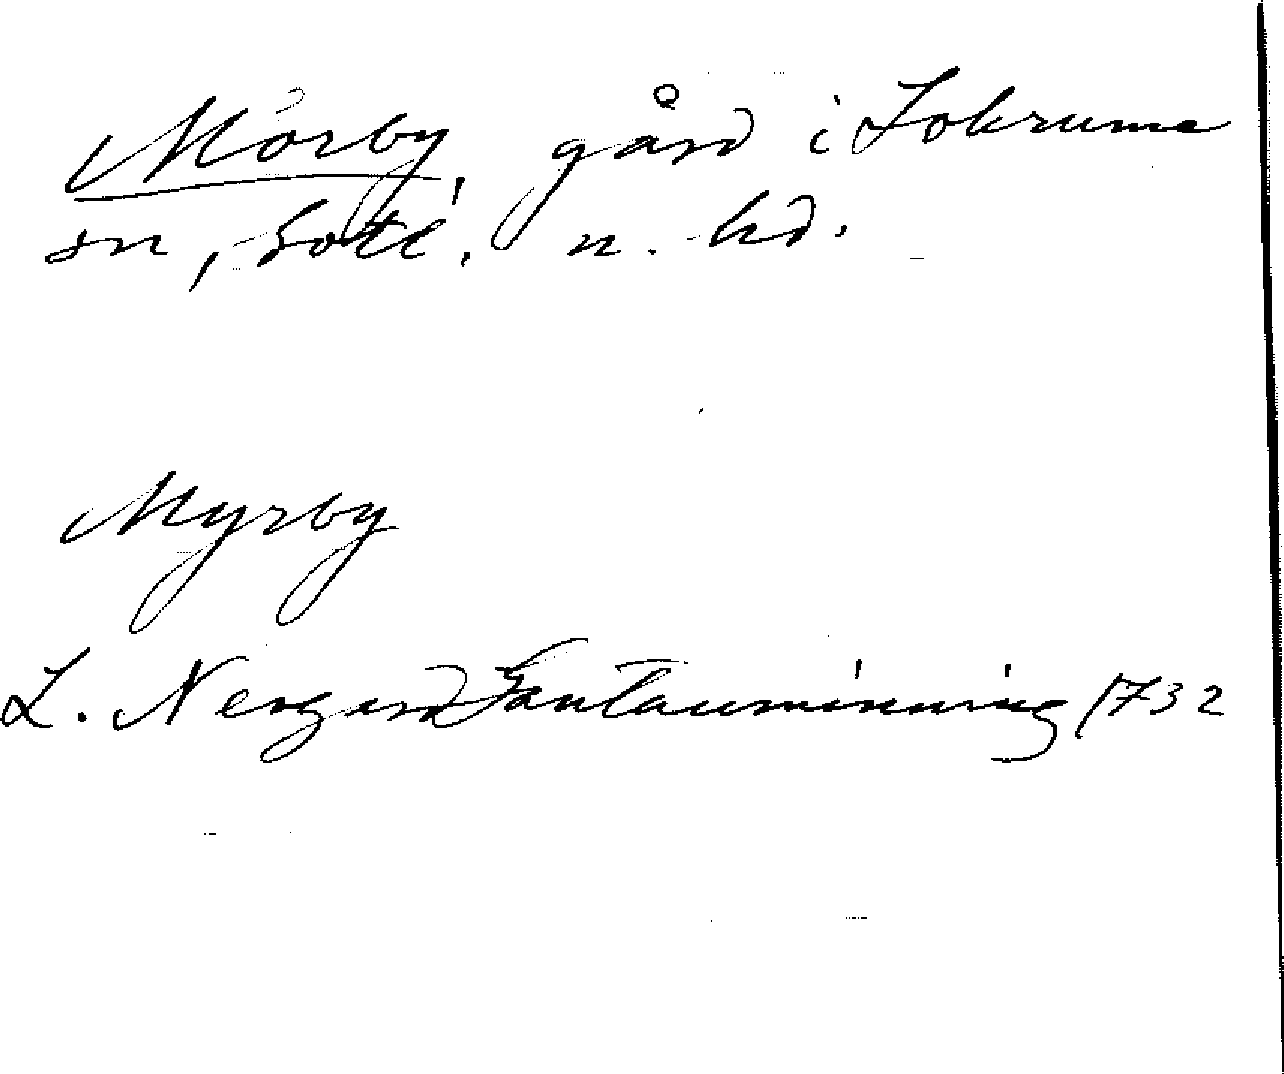 Mörby, gård i Lokrume
sn, Gotl. n. hd.
Myrby
L. Nergård Gautauminning 1732